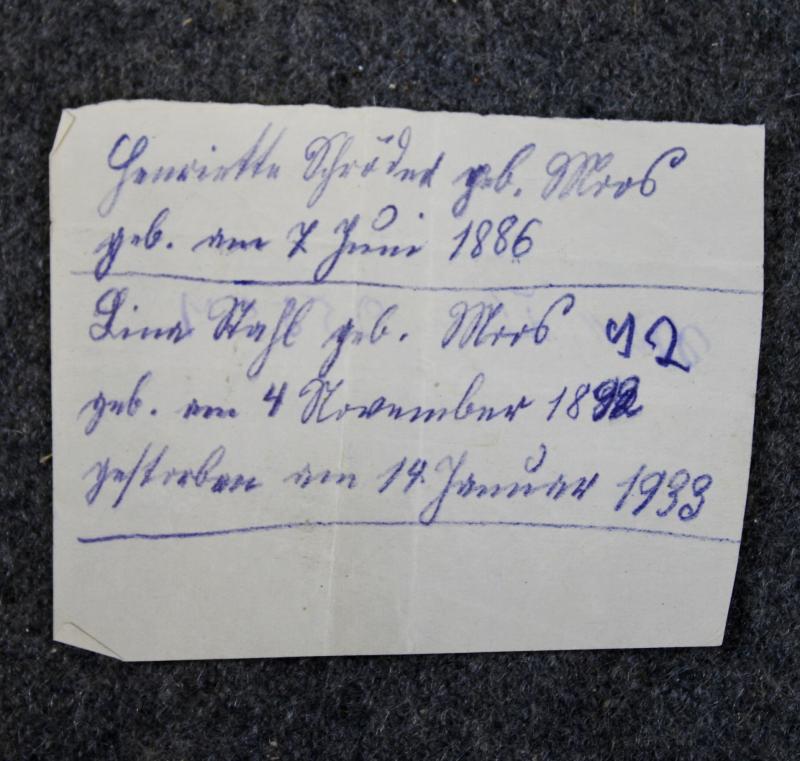 Henriette Schröder geb. Moos
geb. am 7 Juni 1886
Lina Stahl geb. Moos 92
geb. am 4 November 1892
gestorben am 14. Januar 1933